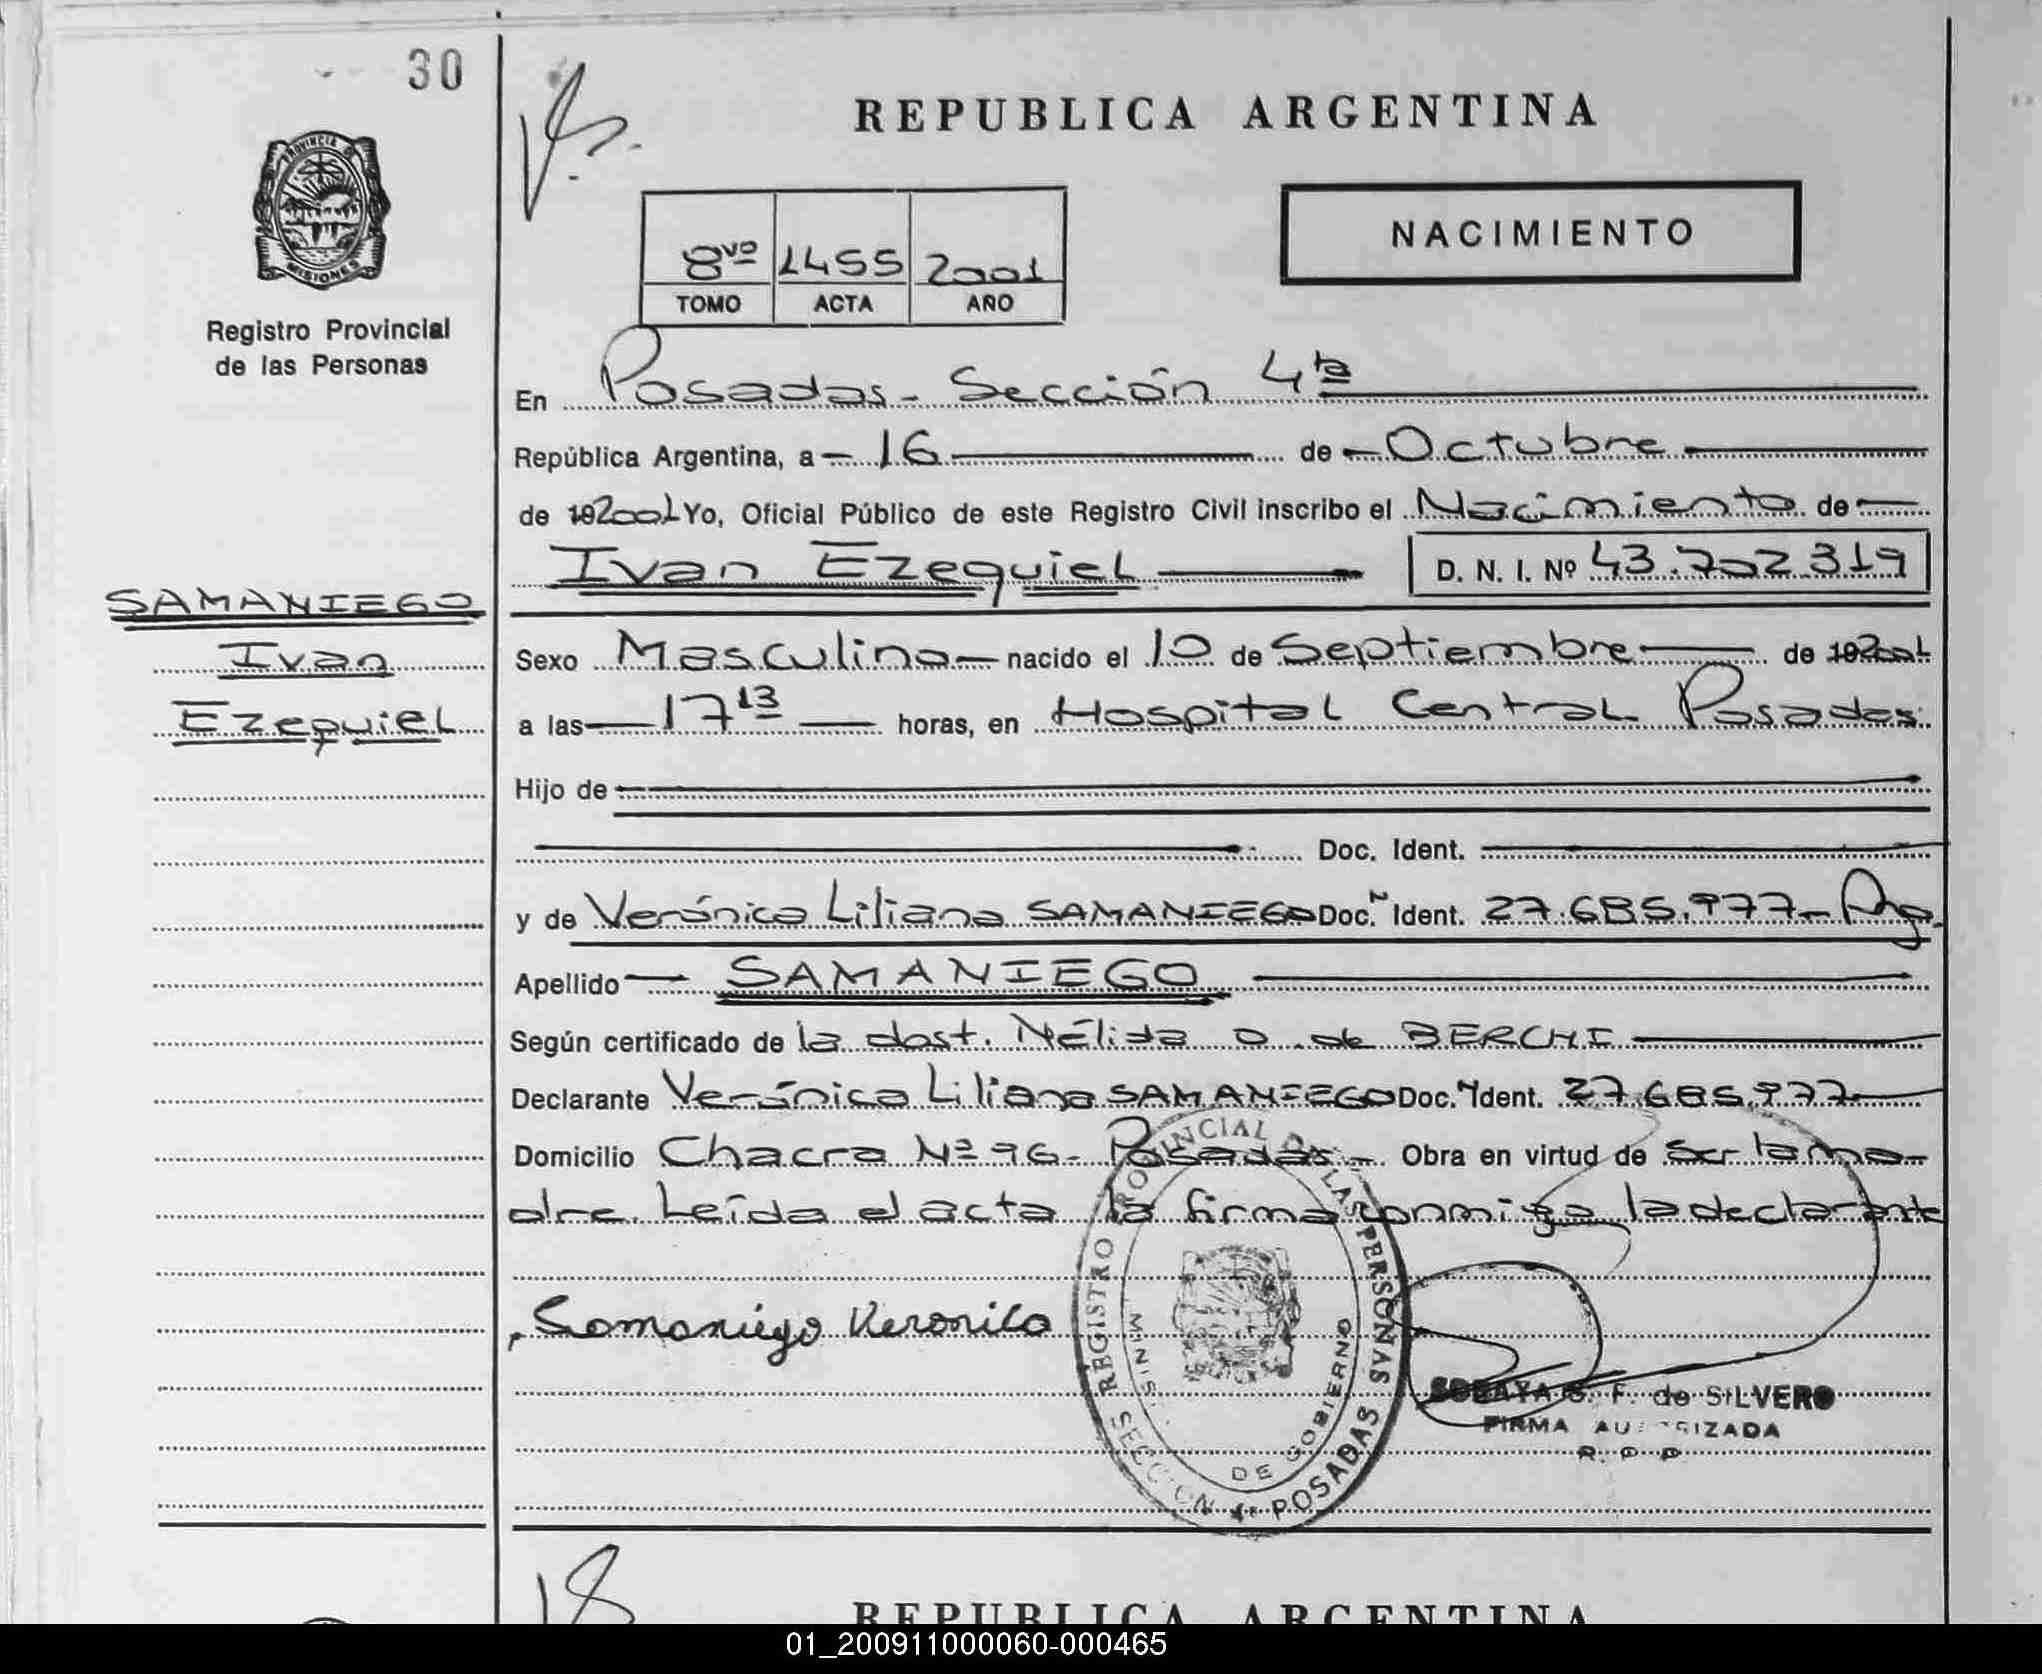 30
REPUBLICA ARGENTINA
PROVINCIA DE
MISIONES
Registro Provincial
de las Personas
NACIMIENTO
8vo 1455 2001
TOMO ACTA AÑO
En Posadas - Sección 4ta
República Argentina, a 16 de Octubre
de 192001 Yo, Oficial Público de este Registro Civil inscribo el Nacimiento de
Ivan Ezequiel D. N. I. Nº 43.702.319
SAMANIEGO
Ivan
Ezequiel
Sexo Masculino nacido el 10 de Septiembre de 192001
a las 17 13 horas, en Hospital Central Posadas
Hijo de
Doc. Ident.
y de Verónica Liliana SAMANIEGO Doc. Ident. 27.685.977 - Arg.
Apellido SAMANIEGO
Según certificado de la obst. Nélida O. de BERCHI
Declarante Verónica Liliana SAMANIEGO Doc. Ident. 27.685.977
Domicilio Chacra Nº 96 - Posadas - Obra en virtud de ser la ma-
dre. Leída el acta la firma conmigo la declarante
Samaniego Veronica
REGISTRO PROVINCIAL DE LAS PERSONAS
DE GOBIERNO
SECCION 4ª POSADAS
SORAYA G. F. de SILVERO
FIRMA AUTORIZADA
R. P. P.
REPUBLICA ARGENTINA
01_200911000060-000465